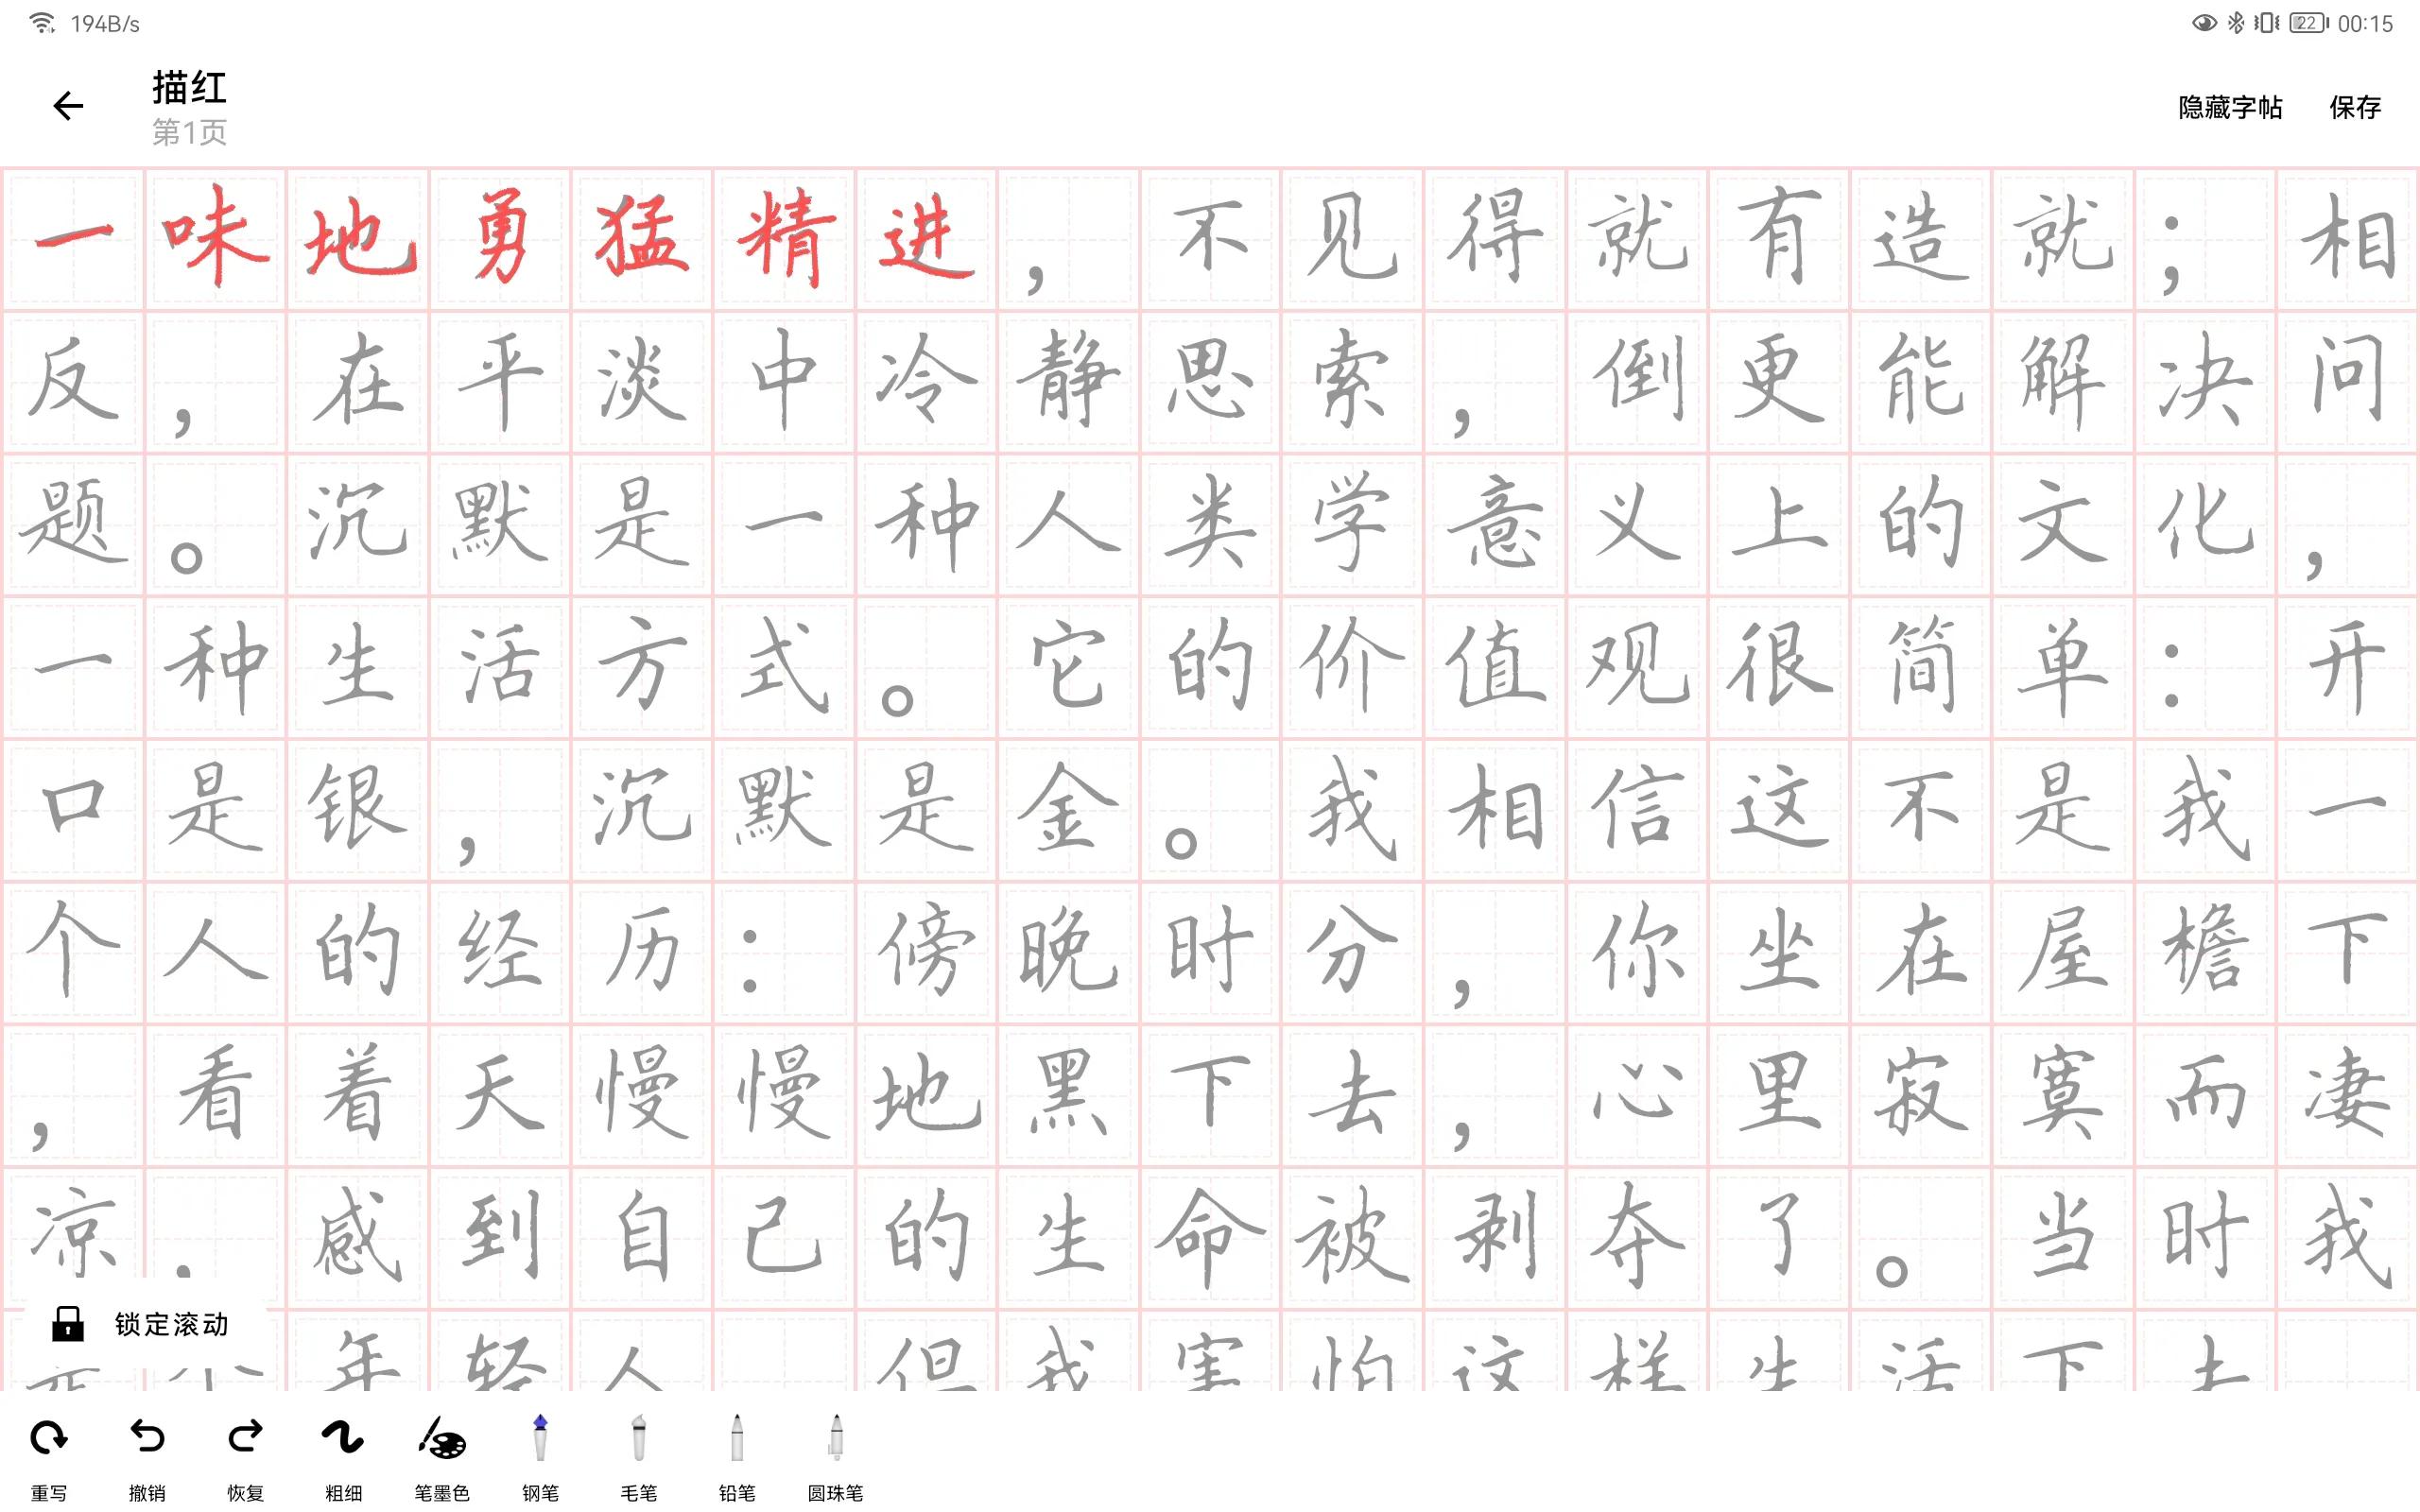 194B/s
22 00:15
描红
第1页
隐藏字帖 保存
一味地勇猛精进，不见得就有造就；相
反，在平淡中冷静思索，倒更能解决问
题。沉默是一种人类学意义上的文化，
一种生活方式。它的价值观很简单：开
口是银，沉默是金。我相信这不是我一
个人的经历：傍晚时分，你坐在屋檐下
，看着天慢慢地黑下去，心里寂寞而凄
凉，感到自己的生命被剥夺了。当时我
年轻人 但我害怕这样生活下去
锁定滚动
重写 撤销 恢复 粗细 笔墨色 钢笔 毛笔 铅笔 圆珠笔